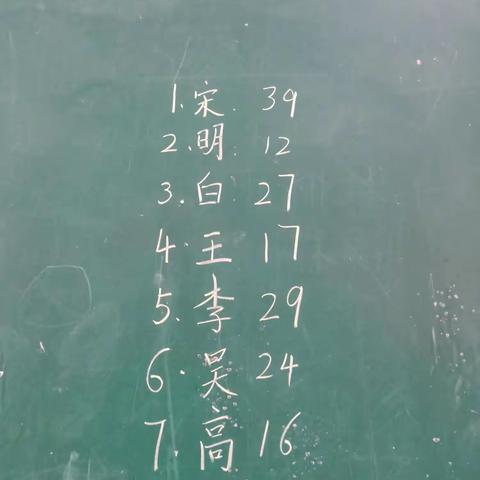 1.宋. 39
2.明. 12
3.白 27
4.王 17
5.李 29
6.吴 24
7.高 16